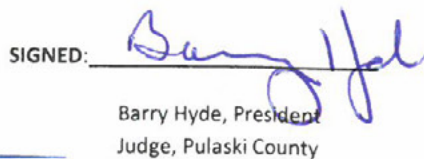 SIGNED: Barry Hyde
Barry Hyde, President
Judge, Pulaski County